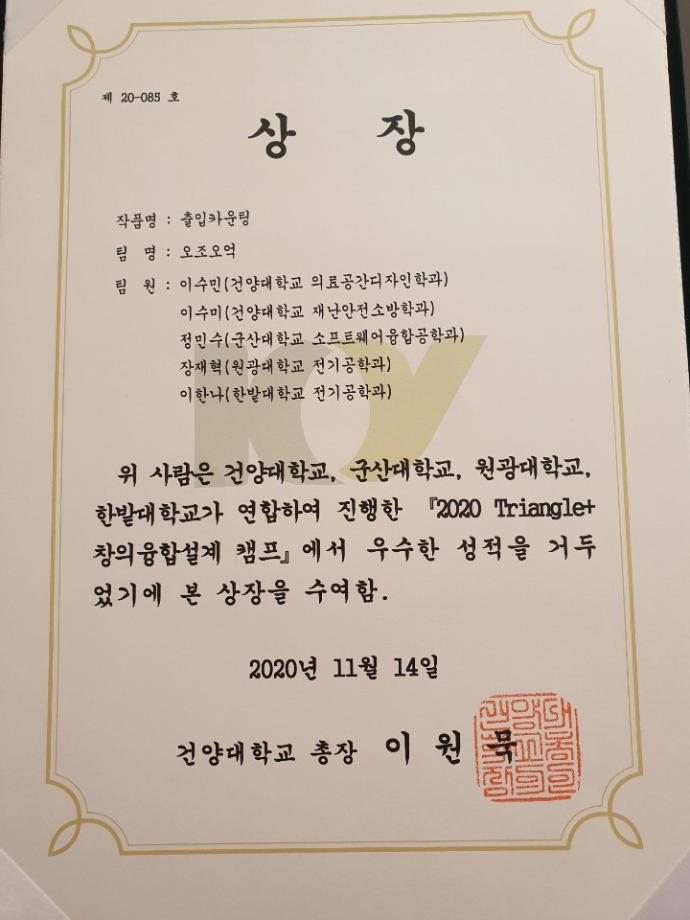 제 20-085 호
상 장
작품명 : 출입카운팅
팀 명 : 오조오억
팀 원 : 이수민(건양대학교 의료공간디자인학과)
이수미(건양대학교 재난안전소방학과)
정민수(군산대학교 소프트웨어융합공학과)
장재혁(원광대학교 전기공학과)
이한나(한밭대학교 전기공학과)
위 사람은 건양대학교, 군산대학교, 원광대학교,
한밭대학교가 연합하여 진행한 『2020 Triangle+
창의융합설계 캠프』에서 우수한 성적을 거두
었기에 본 상장을 수여함.
2020년 11월 14일
건양대학교 총장 이 원 묵